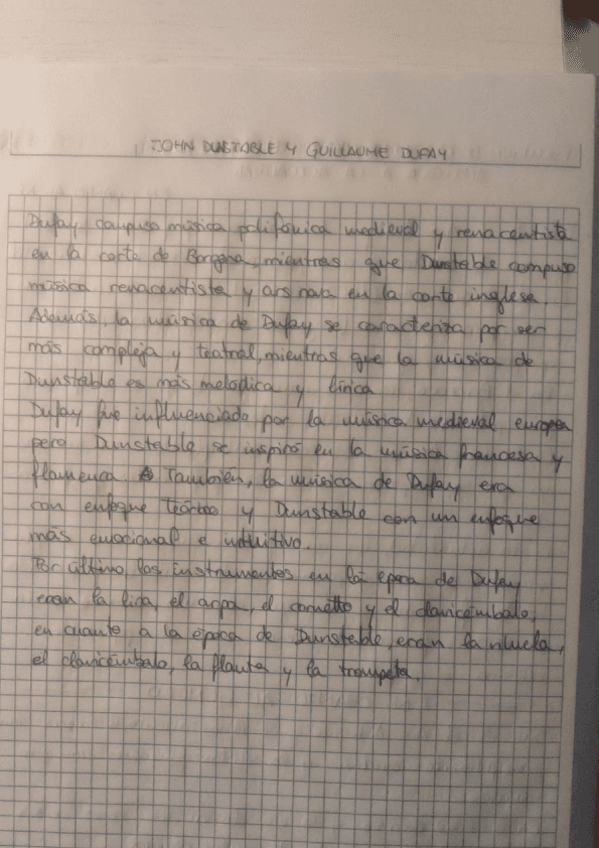 JOHN DUNSTABLE Y GUILLAUME DUFAY
Dufay compuso música polifónica medieval y renacentista
en la corte de Borgoña, mientras que Dunstable compuso
música renacentista y ars nova en la corte inglesa.
Además, la música de Dufay se caracteriza por ser
más compleja y teatral, mientras que la música de
Dunstable es más melódica y lírica
Dufay fue influenciado por la música medieval europea
pero Dunstable se inspiró en la música francesa y
flamenca. También, la música de Dufay era
con enfoque teórico y Dunstable con un enfoque
más emocional e intuitivo.
Por último, los instrumentos en la época de Dufay
eran la lira, el arpa, el cornetto y el clavicémbalo,
en cuanto a la época de Dunstable, eran la vihuela,
el clavicémbalo, la flauta y la trompeta.